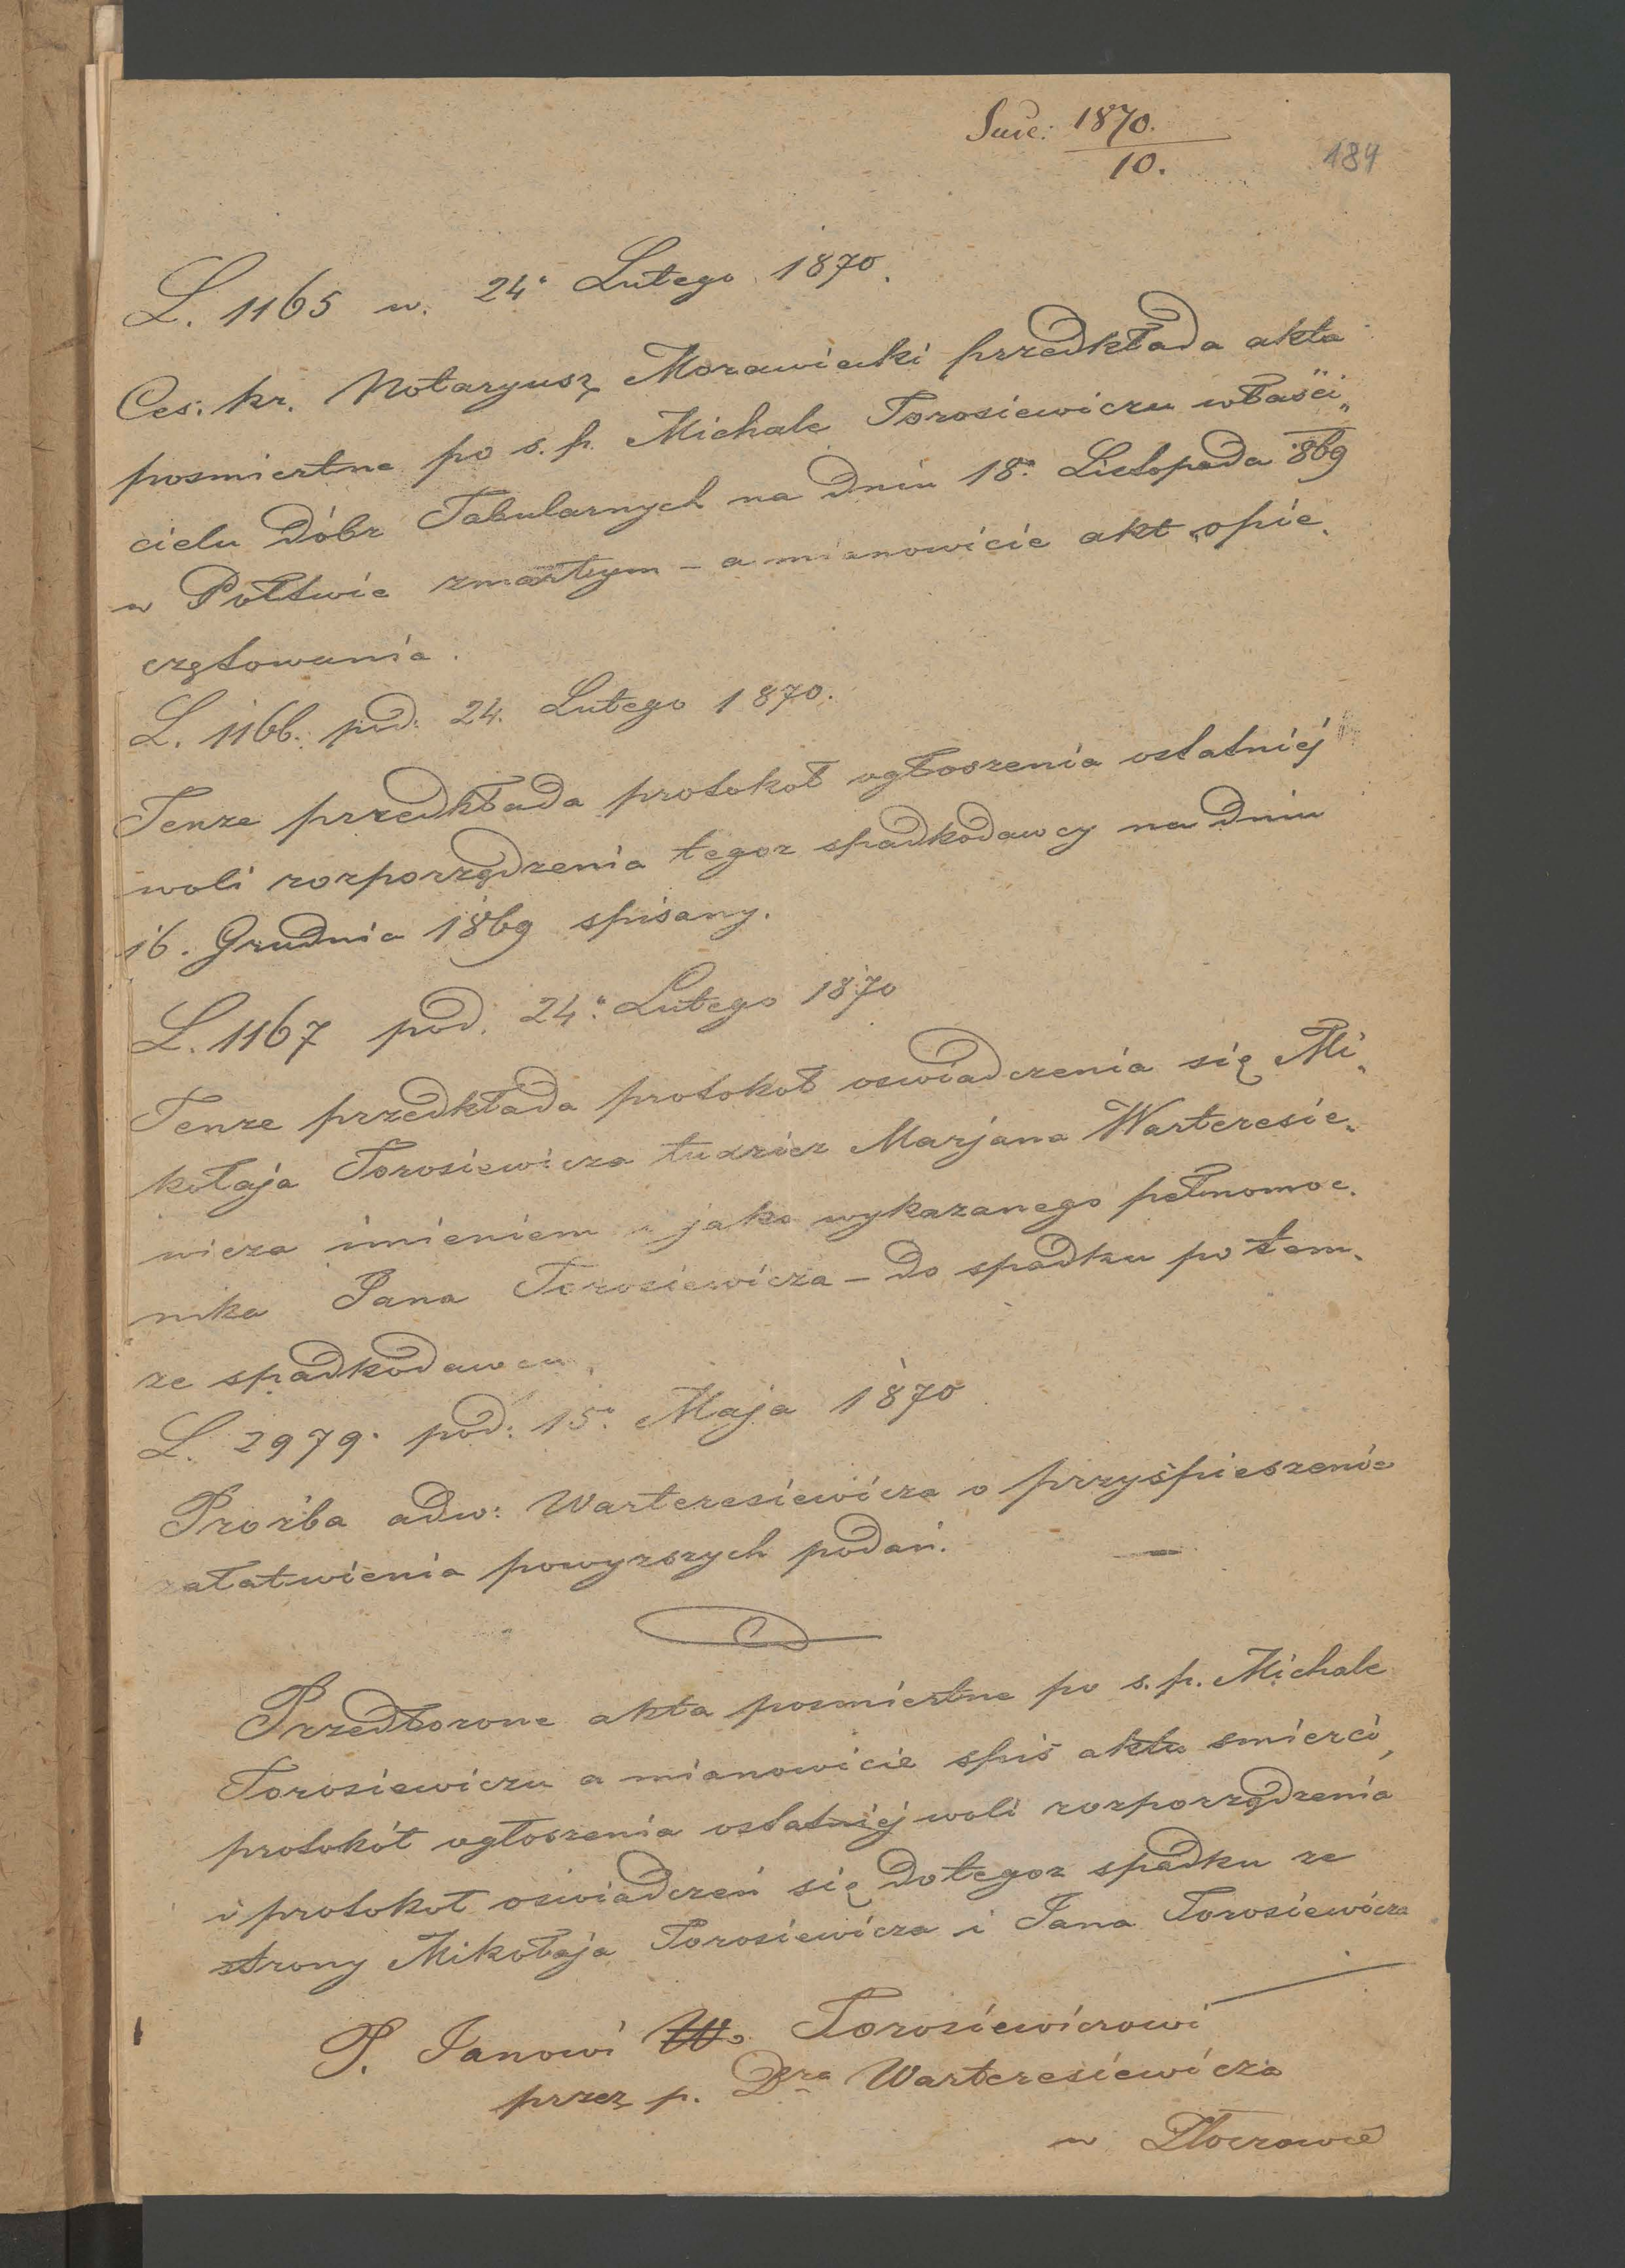 Succ: 1870.
10.
184
L. 1165 w. 24. Lutego 1870.
Ces: kr. Notaryusz Morawiecki przedkłada akta
posmiertne po s. p. Michale Torosiewiczu właści„
cielu Dóbr Tabularnych na dniu 18. Listopada 869
w Połtwie zmarłym – a mianowicie akt opie„
czętowania.
L. 1166. pod: 24. Lutego 1870.
Tenze przedkłada protokoł ogłoszenia ostatniéj
woli rozporządzenia tegoz spadkodawcy na dniu
16. Grudnia 1869 spisany.
L. 1167 pod. 24. Lutego 1870
Tenze przedkłada protokoł oswiadczenia się Mi„
kołaja Torosiewicza tudziez Marjana Warteresie„
wicza imieniem jako wykazanego pełnomoc„
nika Jana Torosiewicza – do spadku po tem„
ze spadkodawcu
L. 2979. pod: 15. Maja 1870
Prozba adw: Warteresiewicza o przyśpieszenie
załatwienia powyzszych podań.
Przedłozone akta posmiertne po s. p. Michale
Torosiewiczu a mianowicie spis aktu smierci,
protokół ogłoszenia ostatniéj woli rozporządzenia
i protokoł oswiadczeń się do tegoz spadku ze
strony Mikołaja Torosiewicza i Jana Torosiewicza
P. Janowi W. Torosiewiczowi
przez p. Dra Warteresiewicza
w Złoczowie